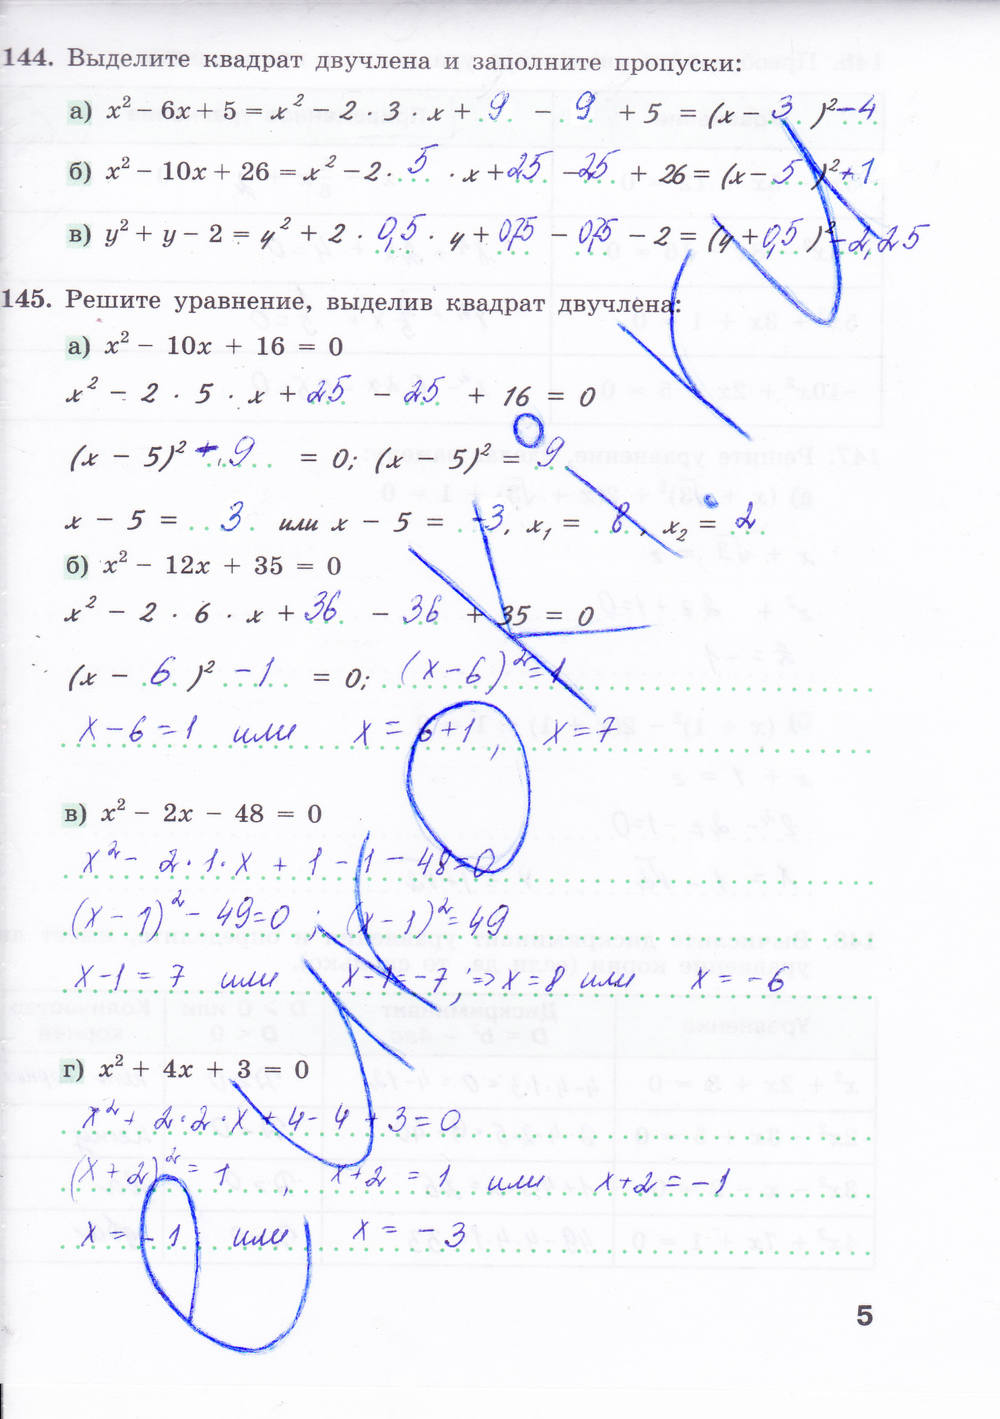 144. Выделите квадрат двучлена и заполните пропуски:
а) x² − 6x + 5 = x² − 2 · 3 · x + 9 − 9 + 5 = (x − 3)² − 4
б) x² − 10x + 26 = x² − 2 · 5 · x + 25 − 25 + 26 = (x − 5)² + 1
в) y² + y − 2 = y² + 2 · 0,5 · y + 0,25 − 0,25 − 2 = (y + 0,5)² − 2,25
145. Решите уравнение, выделив квадрат двучлена:
а) x² − 10x + 16 = 0
x² − 2 · 5 · x + 25 − 25 + 16 = 0
(x − 5)² − 9 = 0; (x − 5)² = 9
x − 5 = 3 или x − 5 = −3, x₁ = 8, x₂ = 2
б) x² − 12x + 35 = 0
x² − 2 · 6 · x + 36 − 36 + 35 = 0
(x − 6)² − 1 = 0; (x − 6)² = 1
x − 6 = 1 или x = 6 + 1, x = 7
в) x² − 2x − 48 = 0
x² − 2 · 1 · x + 1 − 1 − 48 = 0
(x − 1)² − 49 = 0; (x − 1)² = 49
x − 1 = 7 или x − 1 = −7; => x = 8 или x = −6
г) x² + 4x + 3 = 0
x² + 2 · 2 · x + 4 − 4 + 3 = 0
(x + 2)² = 1, x + 2 = 1 или x + 2 = −1
x = −1 или x = −3
5